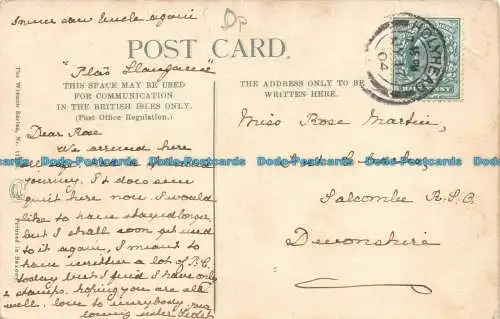 Dp
POST CARD.
THIS SPACE MAY BE USED
FOR COMMUNICATION
IN THE BRITISH ISLES ONLY.
(Post Office Regulation.)
THE ADDRESS ONLY TO BE
WRITTEN HERE.
HOLYHEAD
04
uncle again
"Plâs
Dear Rose
We arrived here
journey. It does seem
quit here now. I would
like to have stayed longer
but I shall soon get used
to it again, I meant to
have written a lot of P.C.
today but I find I have only
2 stamps. hoping you are all
well. love to everybody,
loving sister
Miss Rose Martin,
Salcombe R.S.O.
Devonshire
Postcards Dado-Postcards Dado-Postcards Dado-Postcards
Printed in Saxony